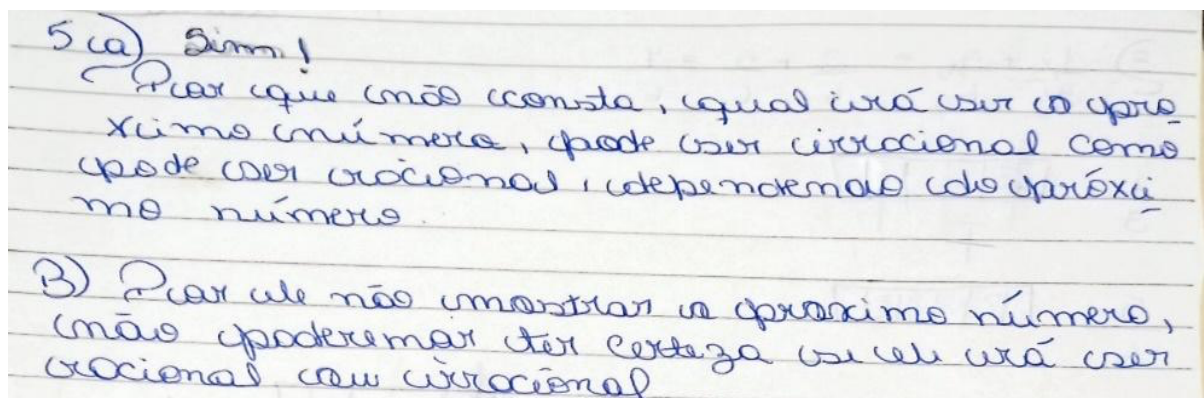 5 a) Sim!
Por que não consta, qual irá ser o pro
ximo número, pode ser irracional como
pode ser racional, dependendo do próxi
mo número.
B) Por ele não mostrar o proximo número,
não poderemos ter certeza se ele irá ser
racional ou irracional